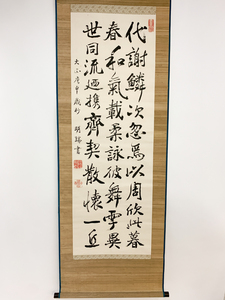 代謝鱗次忽焉以周欣此暮
春和氣載柔詠彼舞雩異
世同流廼携齊契散懷一丘
大正庚申 明 書